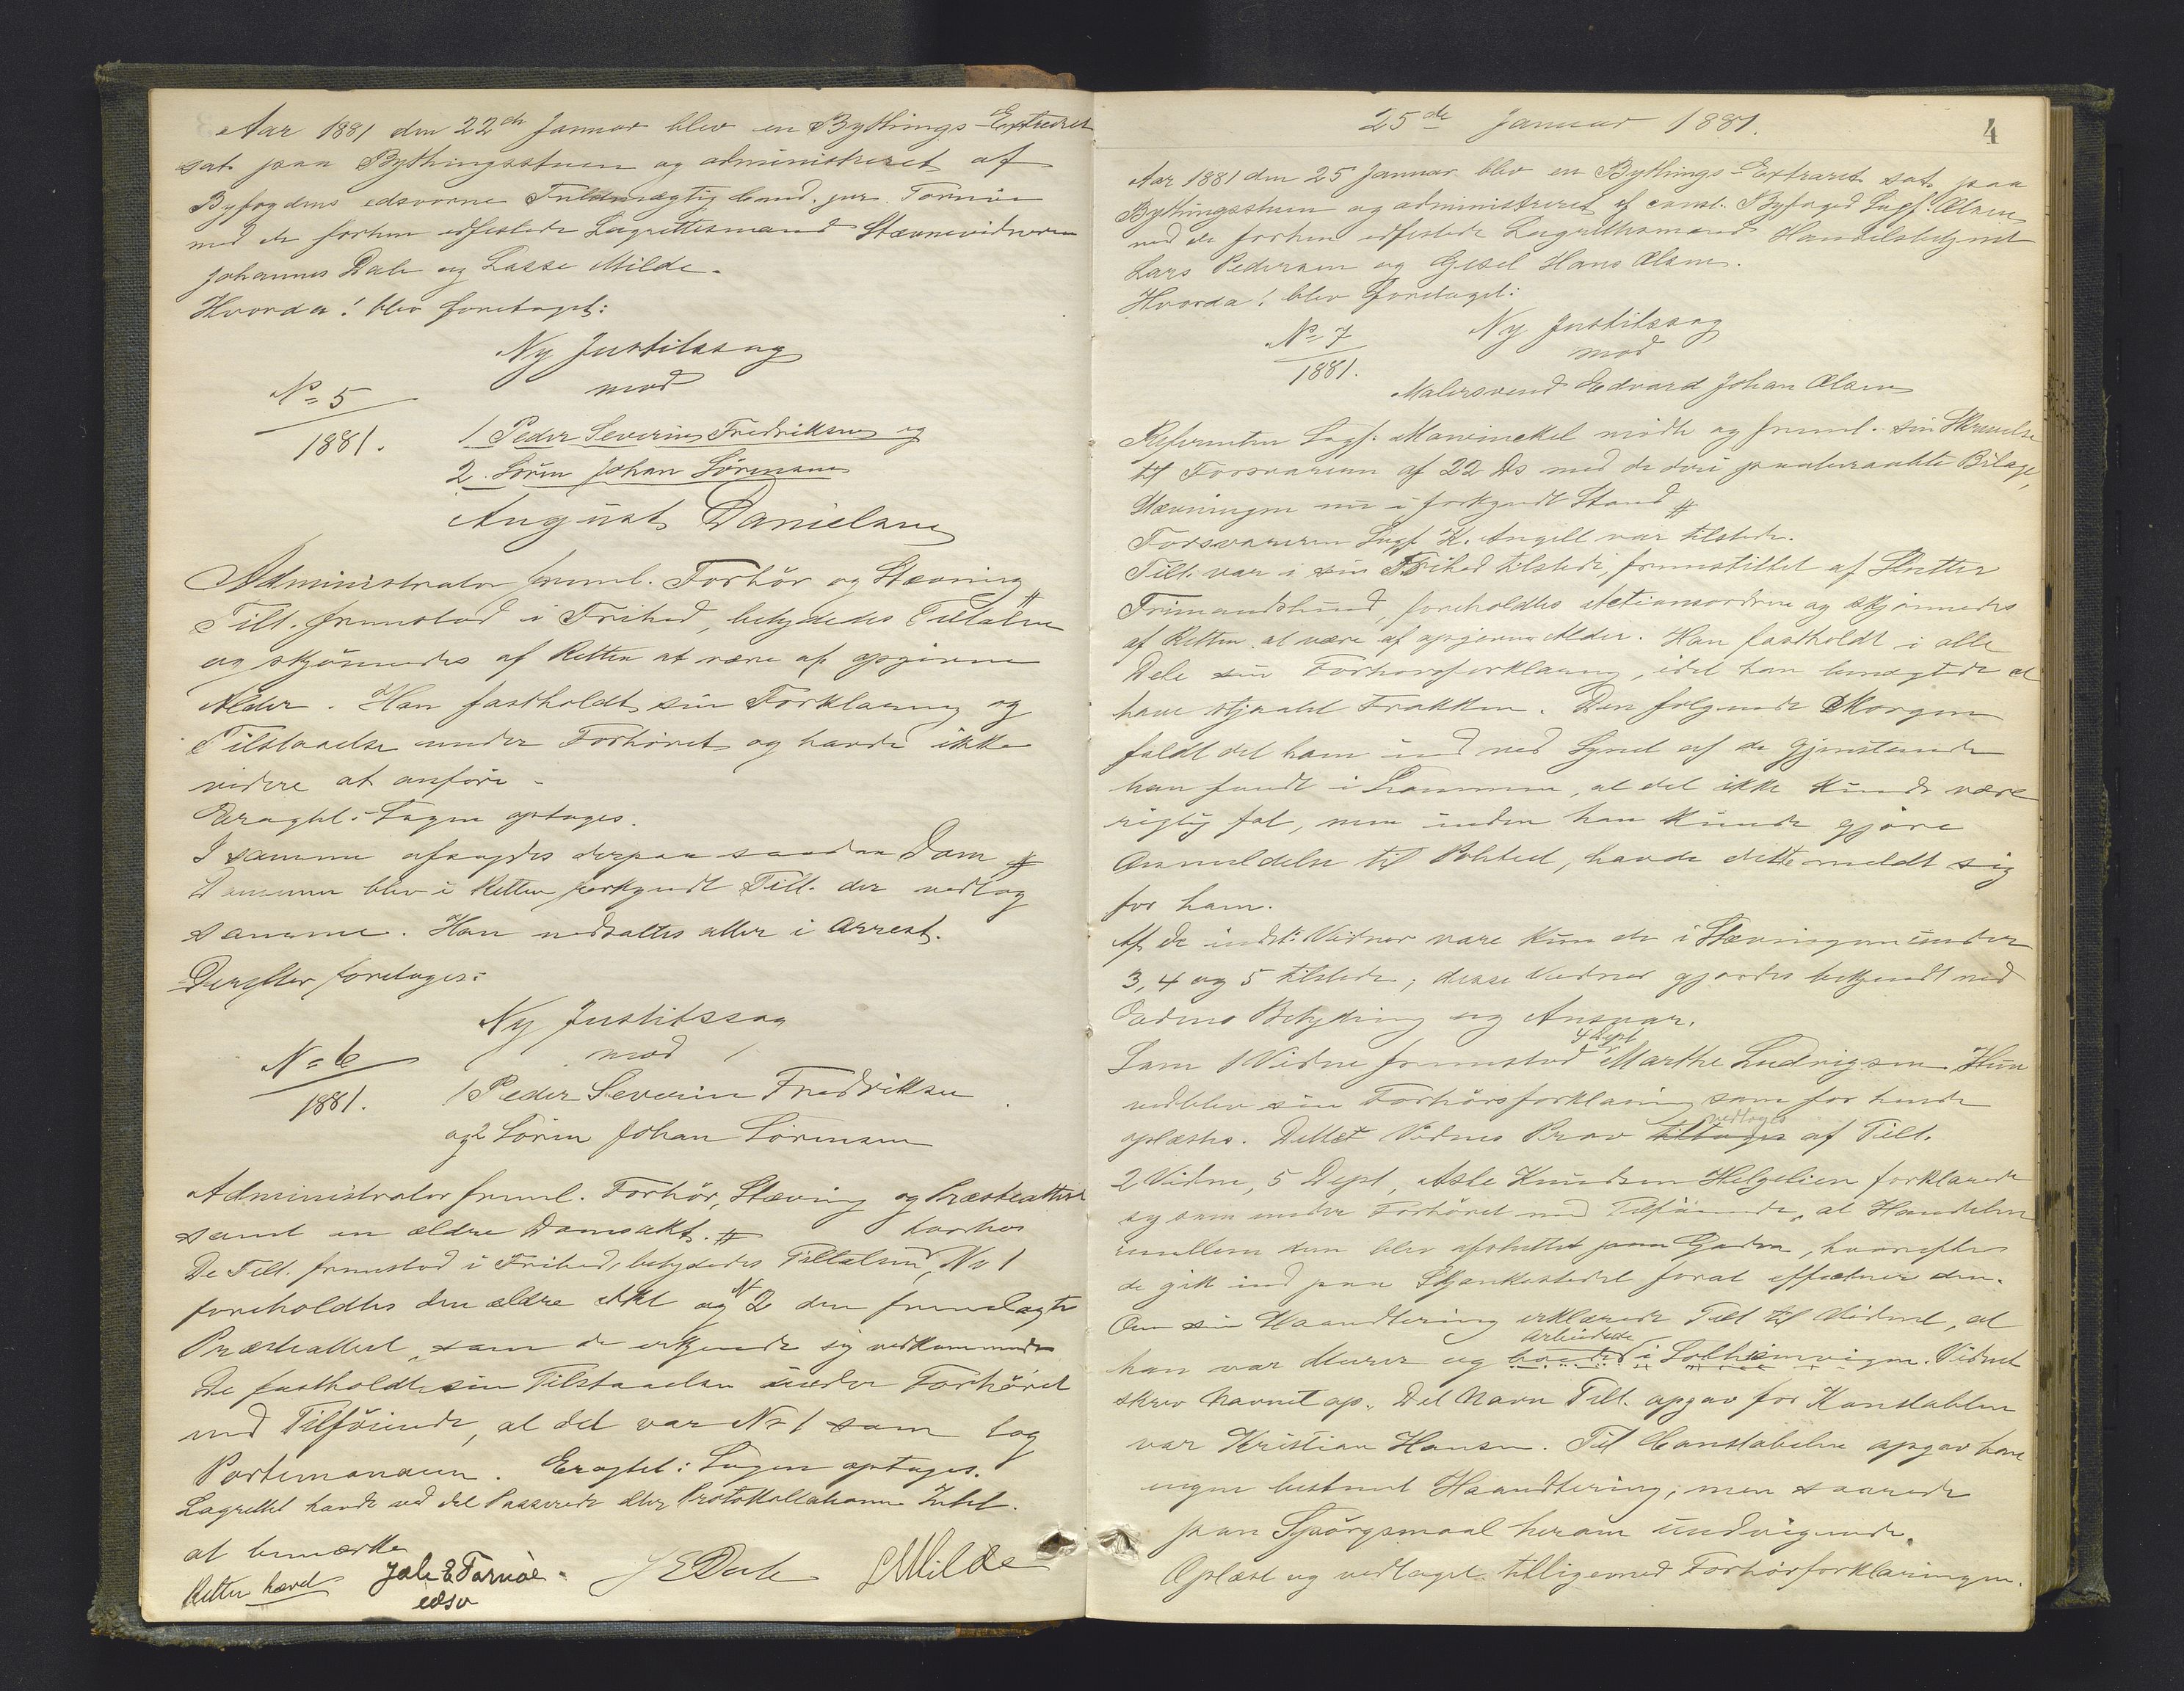 Aar 1881 den 22de Januar blev en Bythings-Extraret
sat paa Bythingsstuen og administreret af
Byfogdens edsvorne Fuldmægtig Cand. jur. Tornöe
med de forhen edfæstede Lagrettesmænd Stævnevidnerne
Johannes Dale og Lasse Milde.
Hvorda! blev foretaget:
Ny Justitssag
No 5
1881.
mod
1 Peder Severin Fredriksen og
2. Sörin Johan Sörensen
August Danielsen
Administrator freml. Forhör og Stævning #
Tilt. fremstod i Frihed, betydedes Tiltalen
og skjönnedes af Retten at være af opgiven
Alder. Han fastholdt sin Forklaring og
Tilstaaelse under Forhöret og havde ikke
videre at anföre.
Eragtet: Sagen optages.
I samme afsagdes derpaa saadan Dom #
Dommen blev i Retten forkyndt Tilt. der vedtog
samme. Han nedsattes atter i Arrest.
Derefter foretoges:
Ny Justitssag
No 6
1881.
mod
1 Peder Severin Fredriksen
og 2 Sörin Johan Sörensen
Administrator freml. Forhör, Stævning og Præsteattest
samt en ældre Domsakt. # forhör
De Tilt. fremstod i Frihed, betydedes Tiltalen, No 1
foreholdtes den ældre Akt og No 2 den fremlagte
Præsteattest, som de erkjendte sig vedkommende
De fastholdt sin Tilstaaelse under Forhöret
med Tilföiende, at det var No 1 som tog
Portemonæen. Eragtet: Sagen optages.
Lagrettet havde ved det Passerede eller Protokollationen Intet
at bemærke
Retten hævet Jale E Tornöe. J E Dale L Milde
edsv
25de Januar 1881.
4
Aar 1881 den 25 Januar blev en Bythings-Extraret sat paa
Bythingsstuen og administreret af const. Byfoged Sagf. Olsen
med de forhen edfæstede Lagrettesmænd Handelsbetjent
Lars Pedersen og Gesel Hans Olsen.
Hvorda! blev foretaget:
No 7
1881.
Ny Justitssag
mod
Malersvend Edvard Johan Olsen
Referenten Sagf. Mowinckel mödte og freml. sin Skrivelse
til Forsvareren af 22 Ds med de deri paaberaabte Bilage,
Stævningen nu i forkyndt Stand #
Forsvareren Sagf K. Angell var tilstede.
Tilt. var i sin Frihed tilstede, fremstillet af Slutter
Frimandslund, foreholdtes Actionsordren og skjönnedes
af Retten at være af opgiven Alder. Han fastholdt i alle
Dele sin Forhörsforklaring, idet han benægtede at
have stjaalet Frakken. Den fölgende Morgen
faldt det ham ind ved Synet af de Gjenstande
han fandt i Lommen, at det ikke kunde være
rigtig fat, men inden han kunde gjöre
Anmeldelse til Politiet, havde dette meldt sig
for ham.
Af de indst. Vidner vare kun de i Stævningen under
3, 4 og 5 tilstede; disse Vidner gjordes bekjendt med
Edens Betydning og Ansvar.
4 Dept
Som 1 Vidne fremstod Marthe Ludvigsen. Hun
vedblev sin Forhörsforklaring som for hende
vedtoges
oplæstes. Dettet Vidnes Prov tiltoges af Tilt.
2 Vidne, 5 Dept, Asle Knudsen Helgelien forklarede
sig som under Forhöret med Tilföiende, at Handelen
imellem dem blev afsluttet paa Gaden, hvorefter
de gik ind paa Skjænkestedet forat effectuere den.
Om sin Haandtering erklærede Tilt til Vidnet, at
arbeidede
han var Murer og boede i Solheimsvigen. Vidnet
skrev Navnet op. Det Navn Tilt. opgav for Konstablen
var Kristian Hansen. Til Constabelen opgav han
ingen bestemt Haandtering, men svarede
paa Spörgsmaal herom undvigende.
Oplæst og vedtaget tilligemed Forhörsforklaringen.